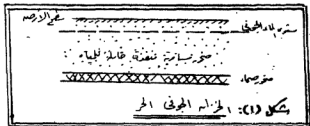 سطح الأرض
مستوى الماء الجوفي
صخور مسامية منفذة حاملة للمياه
صخور صماء
شكل (1): الخزان الجوفي الحر